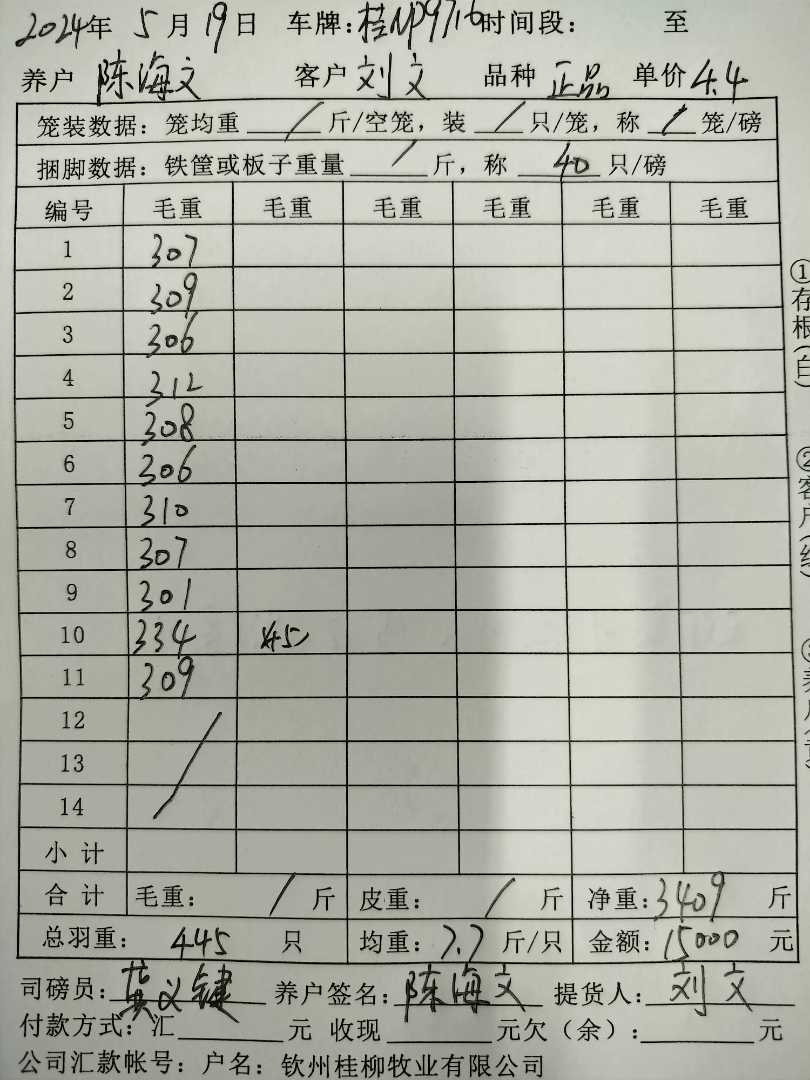 2024年 5月19日 车牌:桂NP9716时间段: 至
养户 陈海文 客户 刘文 品种 正品 单价 4.4
笼装数据: 笼均重 / 斤/空笼, 装 / 只/笼, 称 / 笼/磅
捆脚数据: 铁筐或板子重量 / 斤, 称 40 只/磅
编号 毛重 毛重 毛重 毛重 毛重 毛重
1 307
2 309
3 306
4 312
5 308
6 306
7 310
8 307
9 301
10 334 45
11 309
12 /
13
14
小计
合计 毛重: / 斤 皮重: / 斤 净重: 3409 斤
总羽重: 445 只 均重: 7.7 斤/只 金额: 15000 元
司磅员: 黄义键 养户签名: 陈海文 提货人: 刘文
付款方式: 汇 元 收现 元欠（余）: 元
公司汇款帐号: 户名: 钦州桂柳牧业有限公司
①存根(白)
②客户(红)